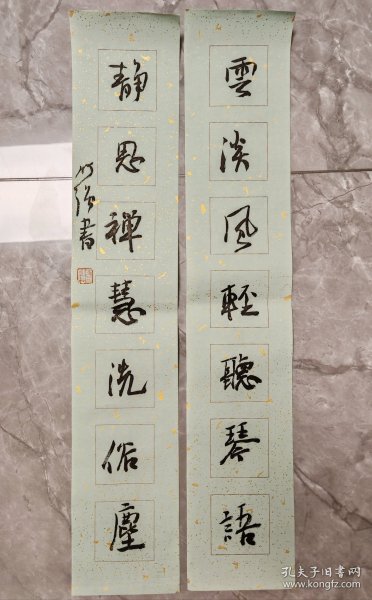 雲淡風輕聽琴語
静思禅慧洗俗塵
孔夫子旧书网
www.kongfz.com